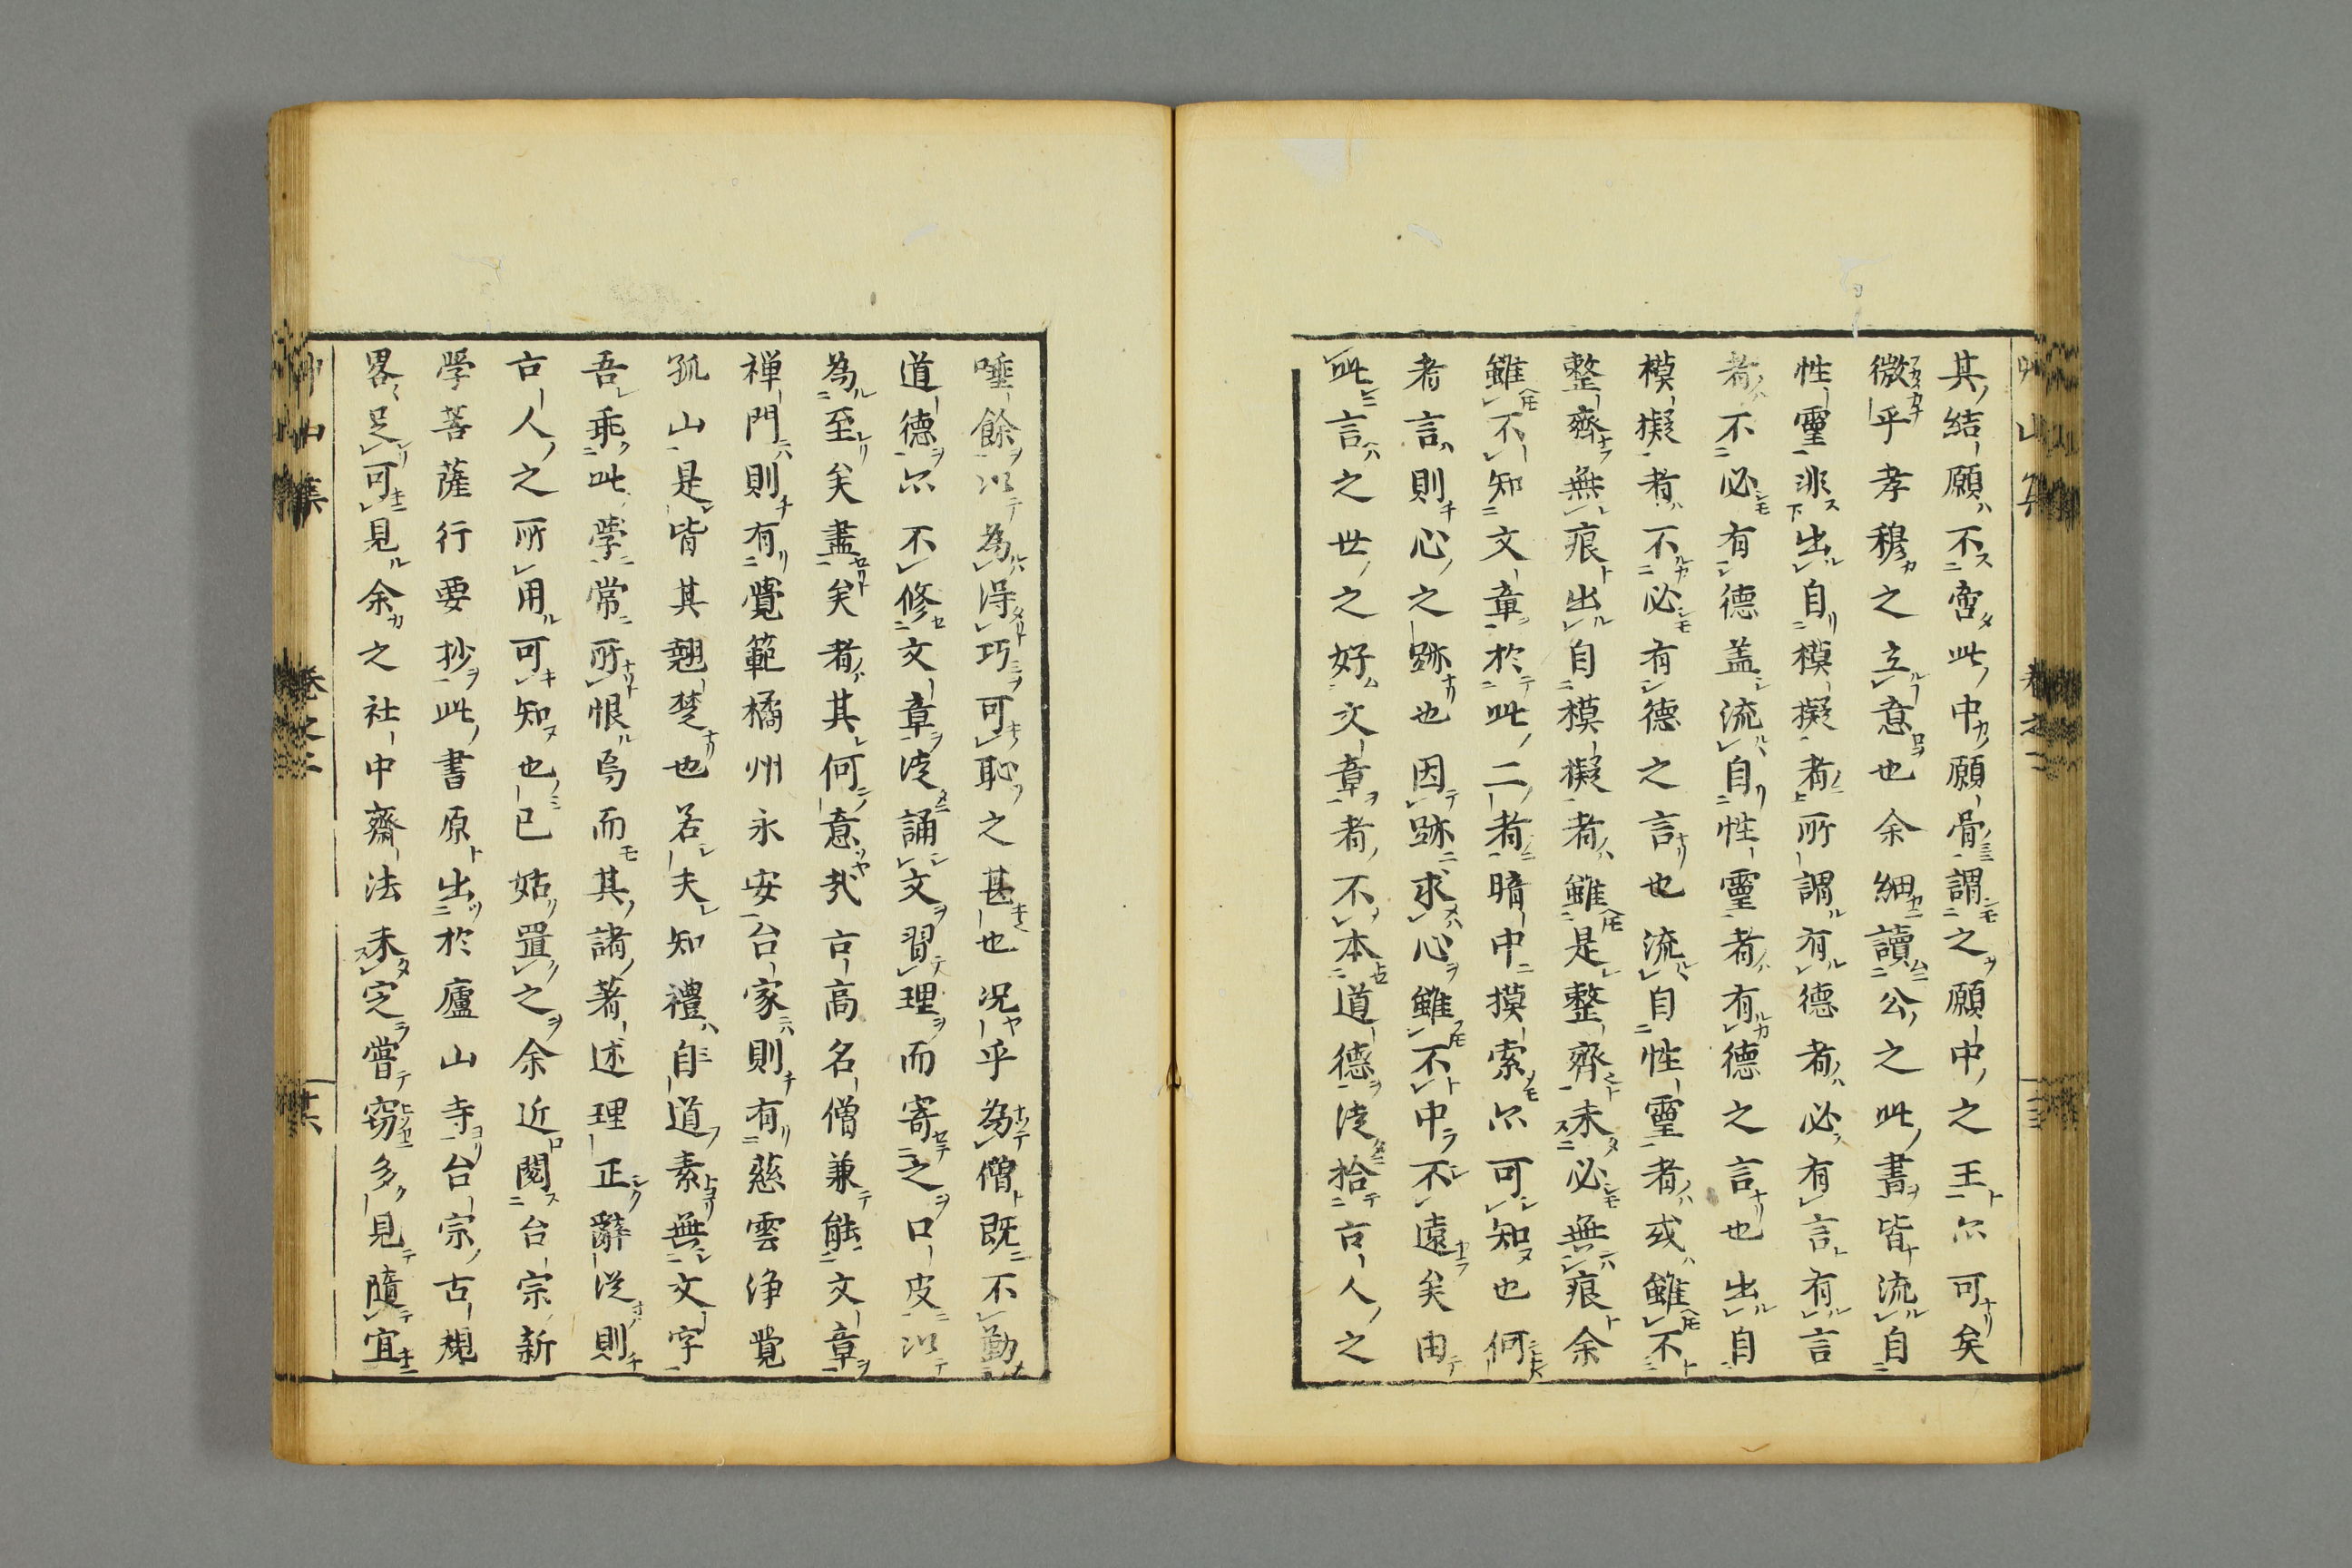 其結願不啻此中願骨謂之願中之王尒可矣
微乎孝穆之立意也余細讀公之此書皆流自
性靈非出自模擬者所謂有德者必有言有言
者不必有德盖流自性靈者有德之言也出自
模擬者不必有德之言也流自性靈者或雖不
整齊無痕出自模擬者雖是整齊未必無痕余
雖不知文章於此二者暗中摸索尒可知也何
者言則心之跡也因跡求心雖不中不遠矣由
此言之世之好文章者不本道德徒拾古人之
唾餘以為得巧可恥之甚也况乎為僧既不勤
道德尒不修文章徒誦文習理而寄之口皮以
為至矣盡矣者其何意哉古高名僧兼能文章
禅門則有覺範橘州永安台家則有慈雲浄覺
孤山是皆其翹楚也若夫知禮自道素無文字
吾乖此學常所恨焉而其諸著述理正辭從則
古人之所用可知也已姑置之余近閱台宗新
學菩薩行要抄此書原出於廬山寺台宗古規
畧足可見余之社中齋法未定嘗窃多見隨宜
艸山集 卷之二